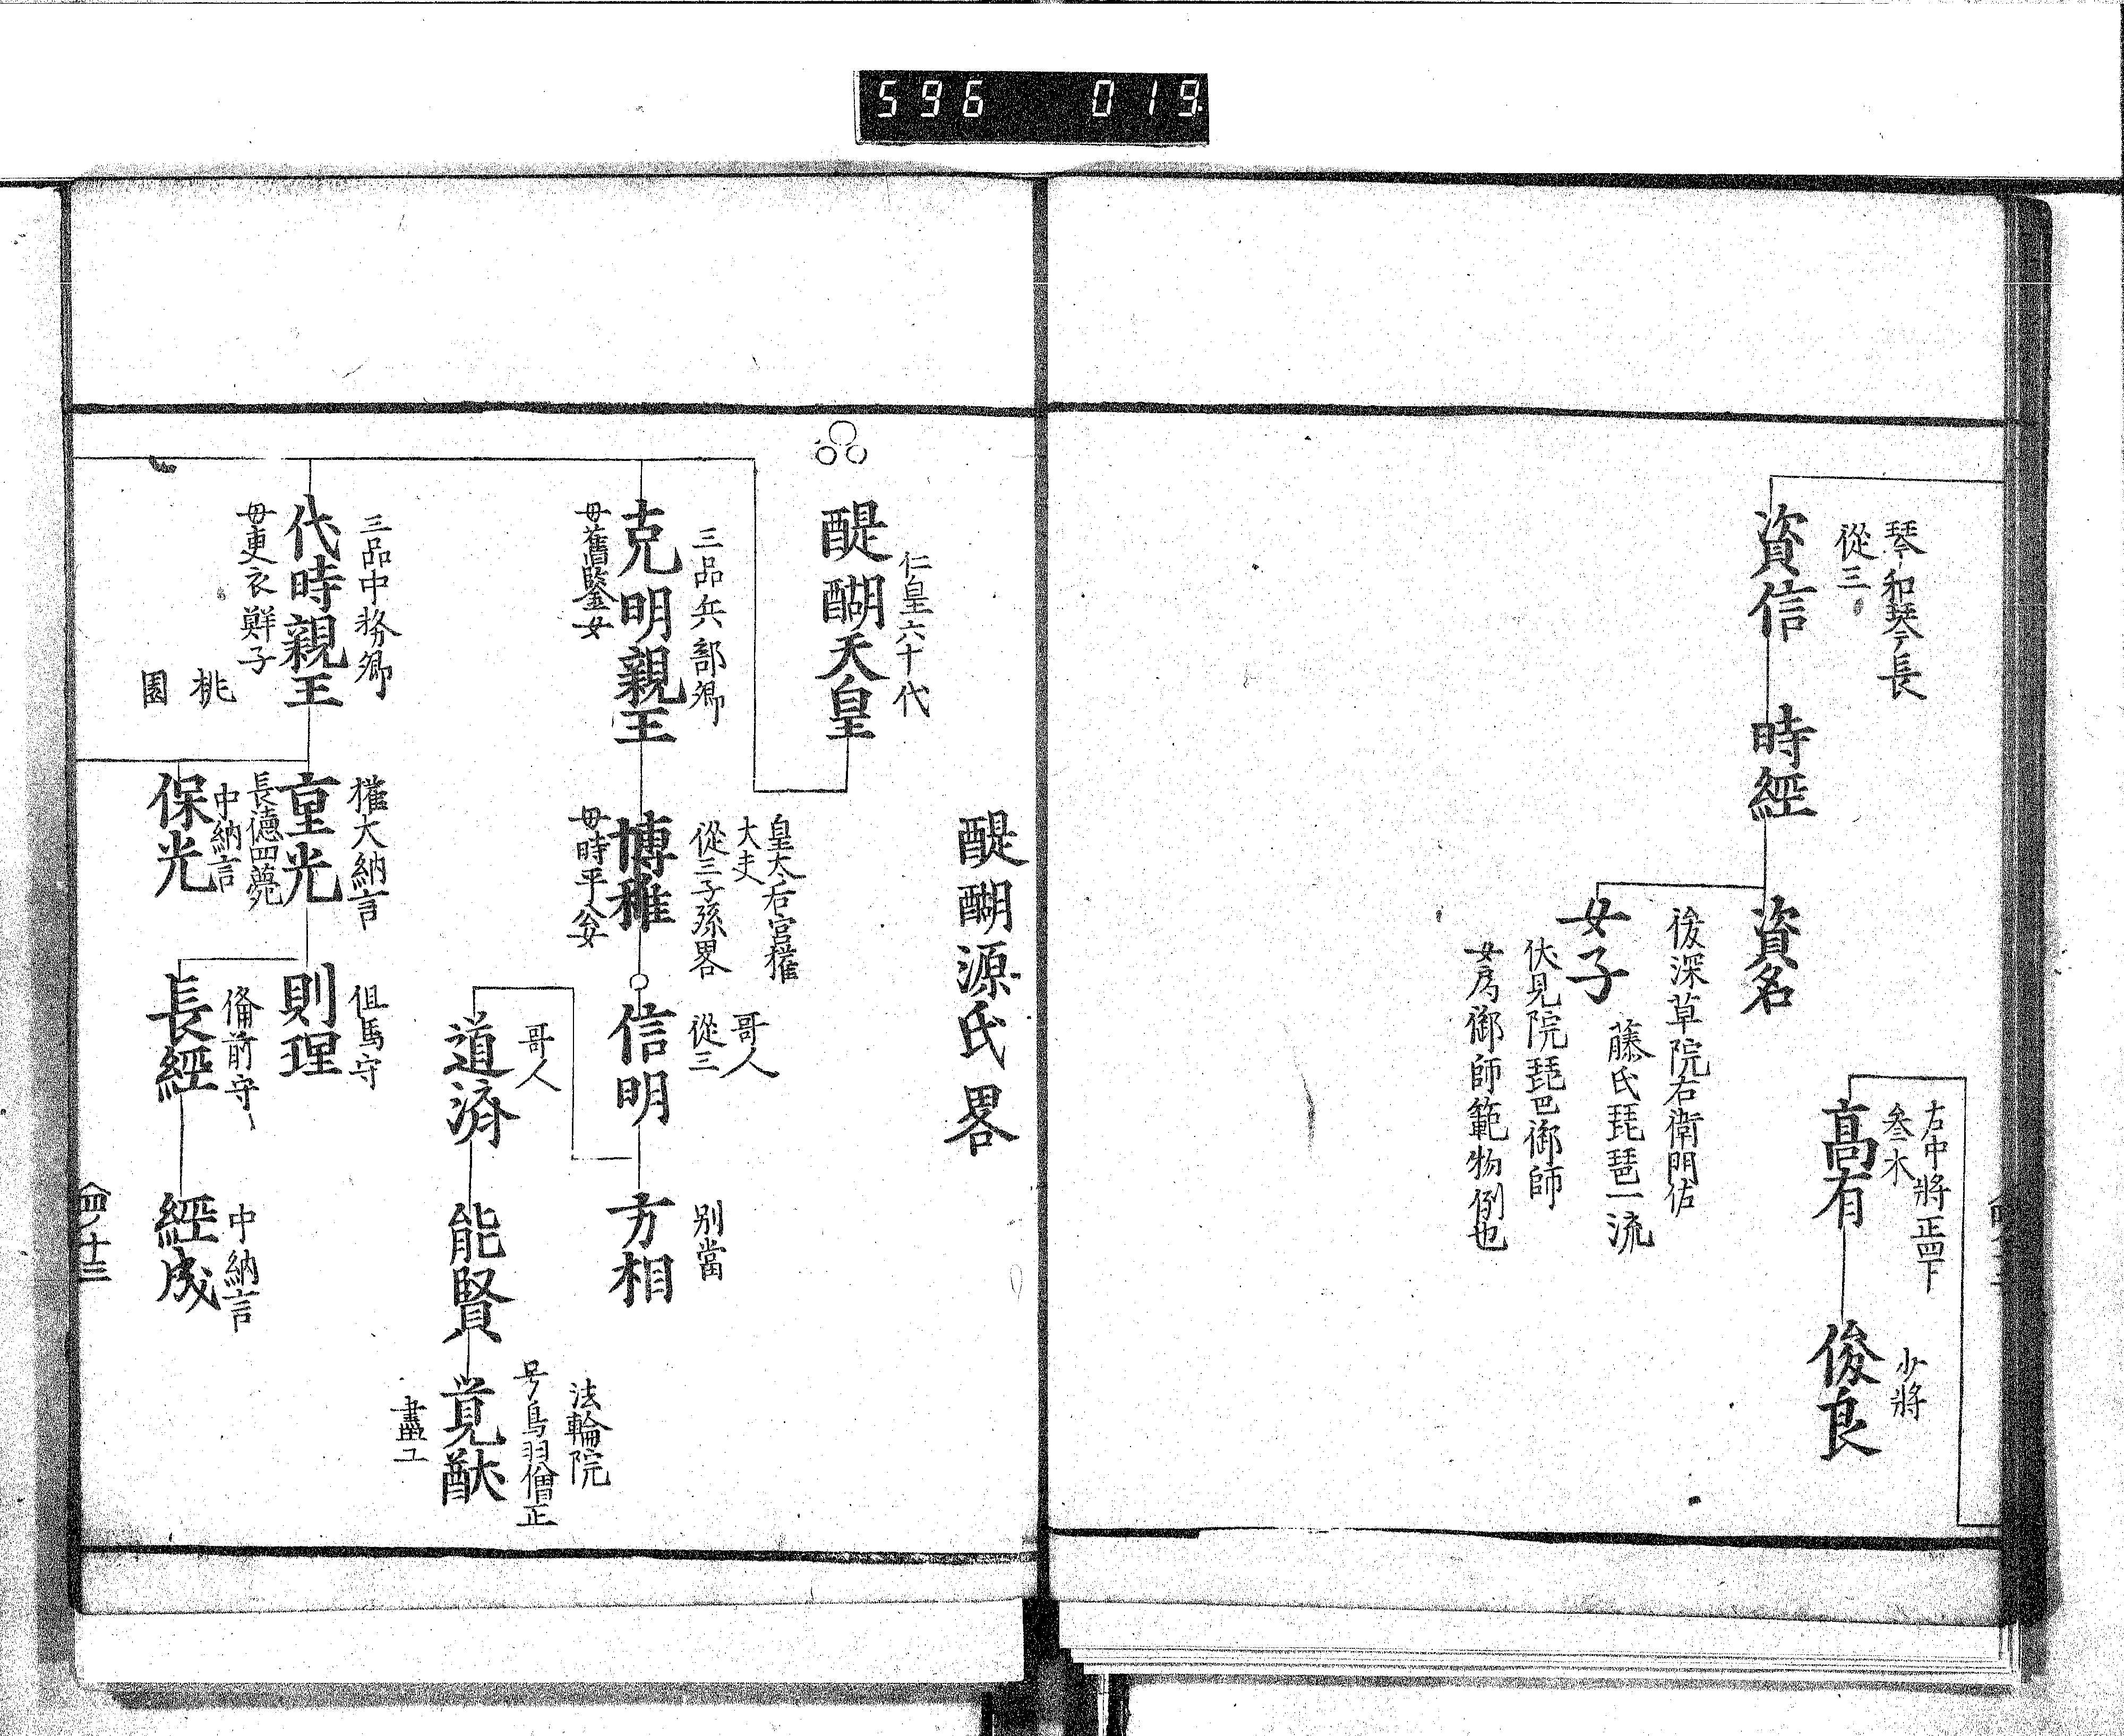 596 019
琴和琴長
從三
資信
時經
資名
後深草院右衛門佑
女子
藤氏琵琶一流
伏見院琵巴御師
女為御師範物例也
右中將正四下
叅木
高有
少將
俊良
醍醐源氏畧
仁皇六十代
醍醐天皇
三品兵部卿
克明親王
母舊鑒女
皇太后宮權
大夫
從三子孫畧
博雅
母時平公女
哥人
從三
信明
別當
方相
哥人
道済
能賢
法輪院
号鳥羽僧正
覚猷
畫工
三品中務卿
代時親王
母更衣鮮子
桃
園
權大納言
重光
長德四薨
中納言
保光
但馬守
則理
俻前守
長經
中納言
經成
四ノ十三